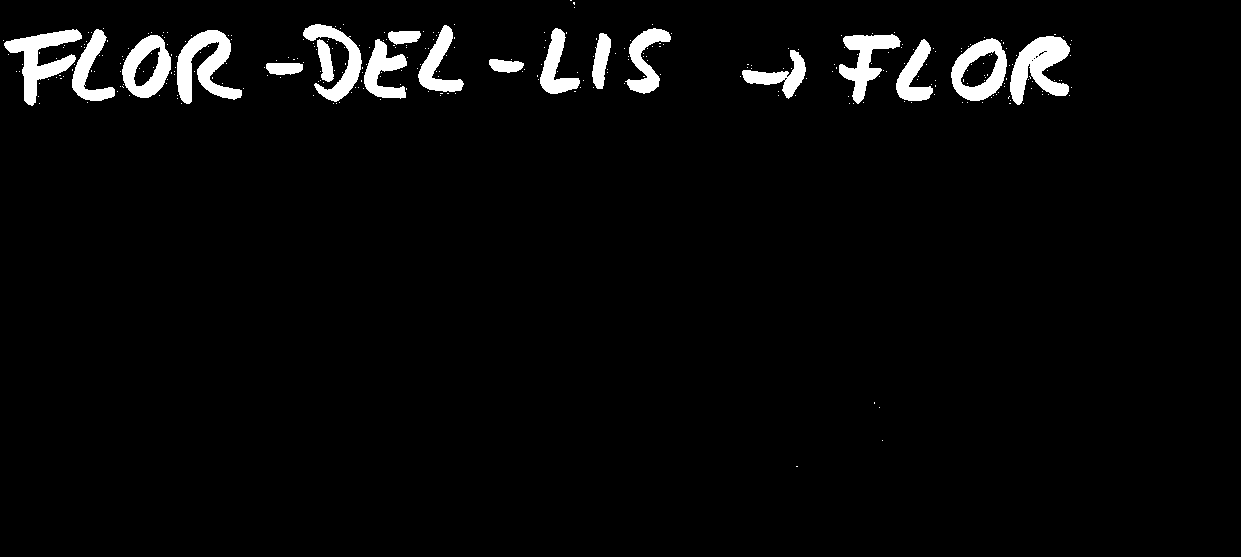 FLOR-DEL-LIS → FLOR